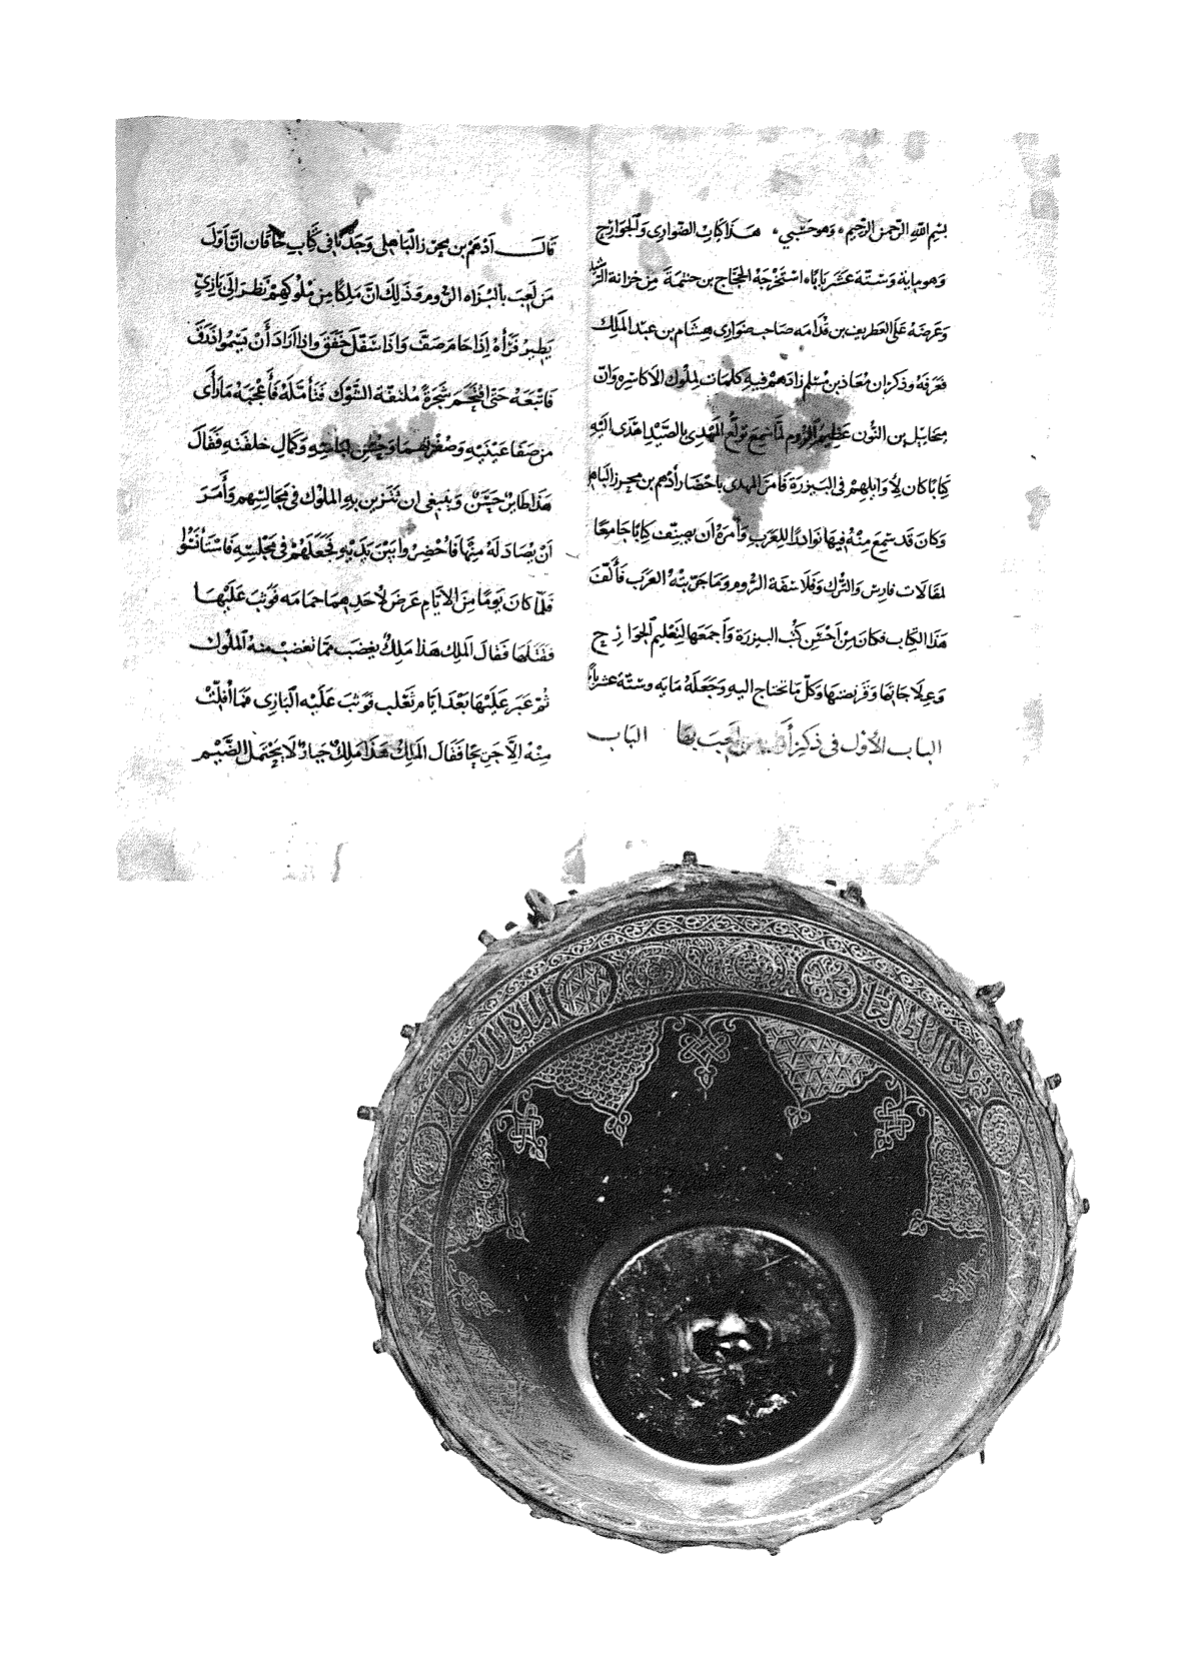 بسم الله الرحمن الرحيم وهو حسبي هذا كتاب الضواري والجوارح
وهو مايه وستة عشر بابا استخرجه الحجاج بن خيثمة من خزانة الرشيد
وعرضه على الغطريف بن قدامه صاحب ضواري هشام بن عبد الملك
فعرفه وذكر ان معاذ بن مسلم زادهم فيه كلمات لملوك الاكاسره وان
ميخاييل بن اليون عظيم الروم لما سمع تولع المهدي بالصيد اهدى اليه
كتابا كان لاوايلهم في البيزرة فأمر المهدي باحضار أدهم بن محرز الباهلي
وكان قد سمع منه فيها نوادرا للعرب وأمره أن يصنف كتابا جامعا
لمقالات فارس والترك وفلاسفة الروم وما جربته العرب فألف
هذا الكتاب فكان من احسن كتب البيزرة وأجمعها لتعليم الجوارح
وعلاجاتها وقرنصتها وكل ما تحتاج اليه وجعله مايه وستة عشر بابا
الباب الأول في ذكر أول من لعب بها الباب
قال ادهم بن محرز الباهلي وجدنا في كتاب خاقان ان أول
من لعب بالبزاه الروم وذلك ان ملكا من ملوكهم نظر الى بازي
يطير فرأه اذا حام صف واذا سفل خفق واذا اراد أن يسموا ذرق
فاتبعه حتى اقتحم شجرة ملتفة الشوك فتأمله فأعجبه ما رأى
من صفا عينيه وصفرتهما وحسن وكمال خلقته فقال
هذا طاير حسن وينبغي ان تتزين به الملوك في مجالسهم وأمر
أن يصاد له منها فاحضروا بين يديه فجعلهم في مجلسه فاستأنسوا
فلما كان يوما من الايام عرض لاحدهما حمامه فوثب عليها
فقتلها فقال الملك هذا ملك يغضب مما تغضب منه الملوك
ثم عبر عليها بعد ايام ثعلب فوثب عليه البازي فما أفلت
منه الا جريحا فقال الملك هذا ملك جبار لا يحتمل الضيم